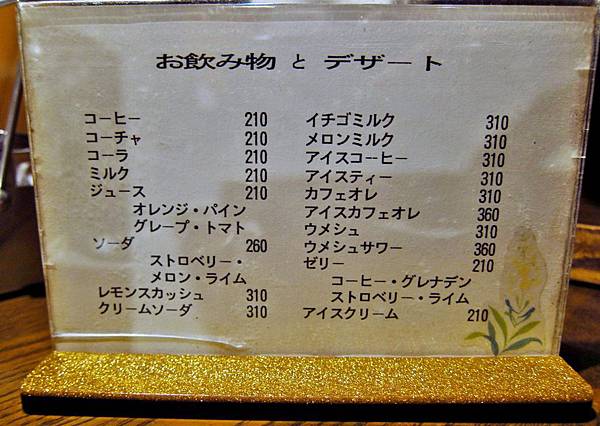 お飲み物 と デザート
コーヒー 210
コーチャ 210
コーラ 210
ミルク 210
ジュース 210
オレンジ・パイン
グレープ・トマト
ソーダ 260
ストロベリー・
メロン・ライム
レモンスカッシュ 310
クリームソーダ 310
イチゴミルク 310
メロンミルク 310
アイスコーヒー 310
アイスティー 310
カフェオレ 310
アイスカフェオレ 360
ウメシュ 310
ウメシュサワー 360
ゼリー 210
コーヒー・グレナデン
ストロベリー・ライム
アイスクリーム 210